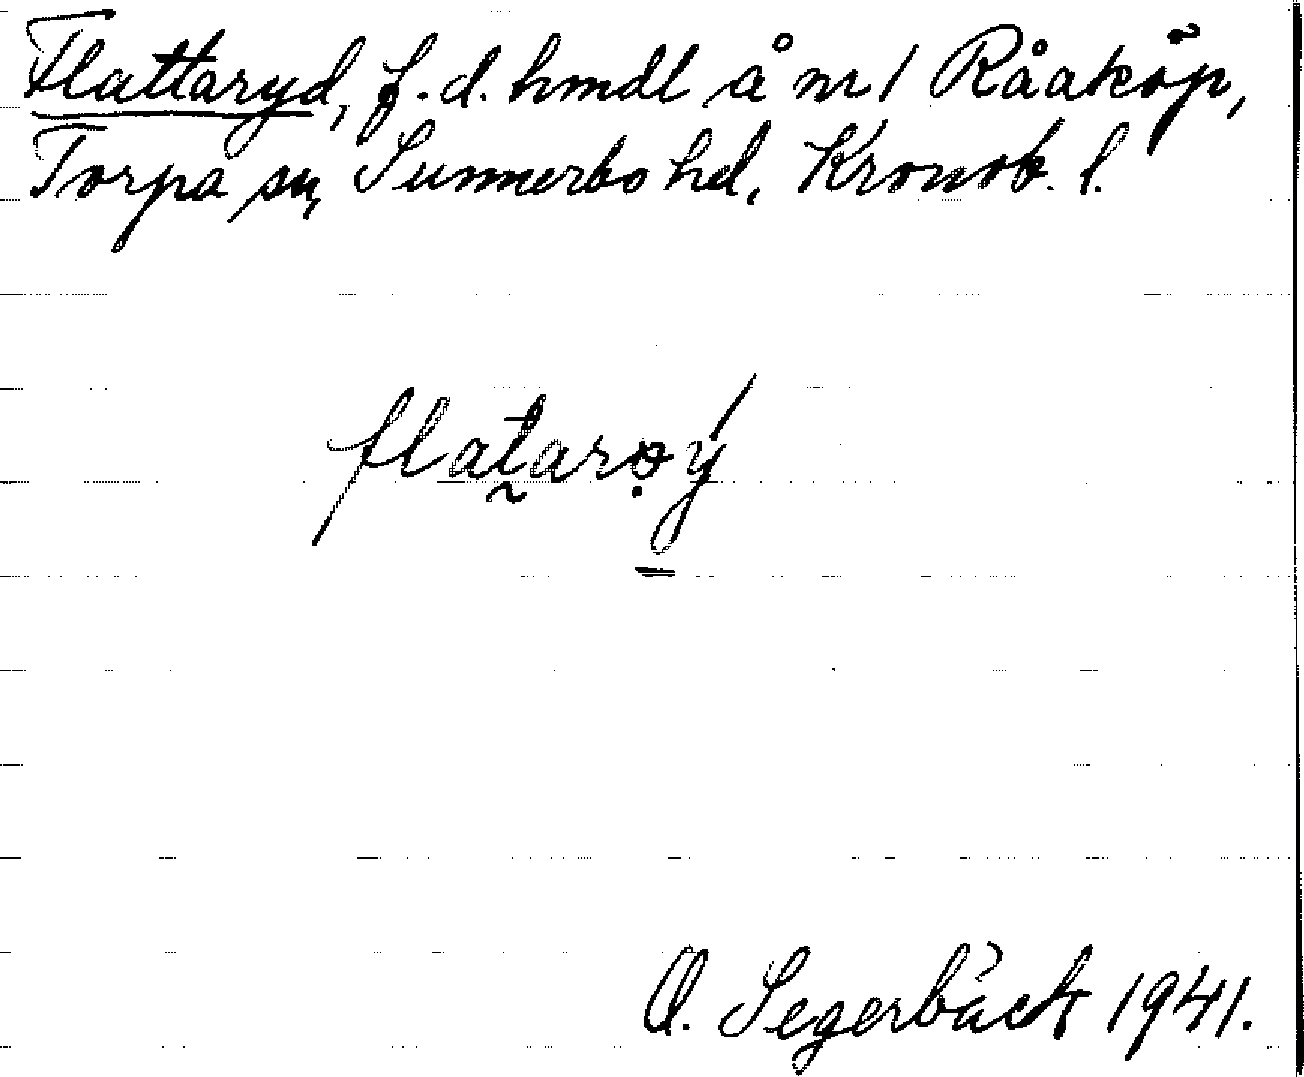 Flattaryd, f.d. hmdl å nr 1 Råaköp,
Torpa sn, Sunnerbo hd, Kronob. l.
flatarøy
O. Segerbäck 1941.